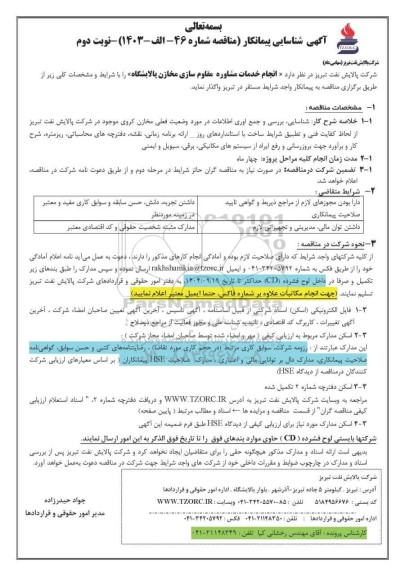 بسمه‌تعالی
آگهی شناسایی پیمانکار (مناقصه شماره ۴۶- الف-۱۴۰۳) -نوبت دوم
شرکت پالایش نفت تبریز (سهامی عام)
شرکت پالایش نفت تبریز در نظر دارد « انجام خدمات مشاوره مقاوم سازی مخازن پالایشگاه» را با شرایط و مشخصات کلی زیر از
طریق برگزاری مناقصه به پیمانکار واجد شرایط مستقر در تبریز واگذار نماید.
۱- مشخصات مناقصه :
۱-۱ خلاصه شرح کار: شناسایی، بررسی و جمع آوری اطلاعات در مورد وضعیت فعلی مخازن کروی موجود در شرکت پالایش نفت تبریز
از لحاظ کیفیت فنی و تطبیق شرایط ساخت با استانداردهای روز ... ارائه برنامه زمانی، نقشه، دفترچه های محاسباتی، ریزمتره، شرح
کار و برآورد جهت بروزرسانی و رفع ایراد از سیستم های مکانیکی، برقی، سیویل و ایمنی
۱-۲ مدت زمان انجام کلیه مراحل پروژه: چهار ماه
۱-۳ تضمین شرکت درمناقصه: در صورت نیاز به مناقصه گران حائز شرایط در مرحله دوم و از طریق دعوت نامه شرکت در مناقصه،
اعلام خواهد شد.
۲- شرایط متقاضی :
دارا بودن مجوزهای لازم از مراجع ذیربط و گواهی تایید صلاحیت پیمانکاری
داشتن تجربه، دانش، حسن سابقه و سوابق کاری مفید و معتبر در زمینه موردنظر
داشتن توان مالی، مدیریتی و تجهیزاتی لازم
مدارک مثبته شخصیت حقوقی و کد اقتصادی معتبر
۳-نحوه شرکت در مناقصه :
از کلیه شرکتهای واجد شرایط که دارای صلاحیت لازم بوده و آمادگی انجام کارهای مذکور را دارند ، دعوت به عمل می‌آید نامه اعلام آمادگی
خود را از طریق فکس به شماره ۳۴۲۰۵۷۹۲-۰۴۱ و ایمیل rakhshanikia@tzorc.ir ارسال نموده و سپس مدارک را طبق بندهای زیر
تکمیل و صرفا در داخل لوح فشرده (CD) حداکثر تا تاریخ ۱۴۰۳/۰۹/۱۹ به دفتر امور حقوقی و قراردادهای شرکت پالایش نفت تبریز
تسلیم نمایند. (جهت انجام مکاتبات علاوه بر شماره فاکس، حتما ایمیل معتبر اعلام نمایید)
۳-۱ فایل الکترونیکی (اسکن) اسناد شرکتی از قبیل اساسنامه ، آگهی تاسیس ، آخرین آگهی تعیین صاحبان امضاء شرکت ، آخرین
آگهی تغییرات ، کاربرگ کد اقتصادی ، تاییدیه شناسه ملی و مجوز فعالیت از مراجع ذیصلاح
۳-۲ اسکن مدارک مربوط به ارزیابی کیفی ( مهر و امضاء شده توسط صاحبان امضاء مجاز شرکت )
این مدارک عبارتند از : رزومه شرکت، سوابق کاری مرتبط (در حجم کاری مورد تقاضا) ، رضایتنامه‌های کتبی و حسن سوابق، گواهی‌نامه
صلاحیت پیمانکاری، مدارک دال بر توانایی مالی و اعتباری ، مدارک صلاحیت HSE پیمانکاران ( بر اساس معیارهای ارزیابی شرکت
کنندگان درمناقصه از دیدگاه HSE)
۳-۳ اسکن دفترچه شماره ۲ تکمیل شده
مراجعه به وبسایت شرکت پالایش نفت تبریز به آدرس WWW.TZORC.IR و دریافت دفترچه شماره ۲، " اسناد استعلام ارزیابی
کیفی مناقصه گران" از قسمت مناقصه و مزایده ها ← اسناد و مطالب مرتبط ( پایین صفحه)
۳-۴ اسکن مدارک مورد نیاز برای ارزیابی کیفی از دیدگاه HSE طبق فرم ضمیمه این آگهی
شرکتها بایستی لوح فشرده ( CD ) حاوی موارد بندهای فوق را تا تاریخ فوق الذکر به این امور ارسال نمایند.
بدیهی است ارائه اسناد و مدارک مذکور هیچگونه حقی را برای متقاضیان ایجاد نخواهد کرد و شرکت پالایش نفت تبریز پس از بررسی
اسناد و مدارک در چارچوب ضوابط و مقررات داخلی خود از شرکت های واجد شرایط جهت شرکت در مناقصه دعوت به‌عمل خواهد آورد.
شرکت پالایش نفت تبریز
آدرس : تبریز . کیلومتر ۵ جاده تبریز-آذرشهر . بلوار پالایشگاه . اداره امور حقوقی و قراردادها
کد پستی : ۵۱۸۴۹۵۶۷۷۶ تلفن : ۸۵-۳۴۲۰۵۵۷۰-۰۴۱ وبسایت : WWW.TZORC.IR
اداره امور حقوقی و قراردادها : تلفن : ۳۱۱۴۸۳۵۰-۰۴۱ فکس : ۳۴۲۰۵۷۹۲-۰۴۱
کارشناس پرونده : آقای مهندس رخشانی کیا تلفن : ۳۱۱۴۸۳۴۹-۰۴۱
جواد حیدرزاده
مدیر امور حقوقی و قراردادها